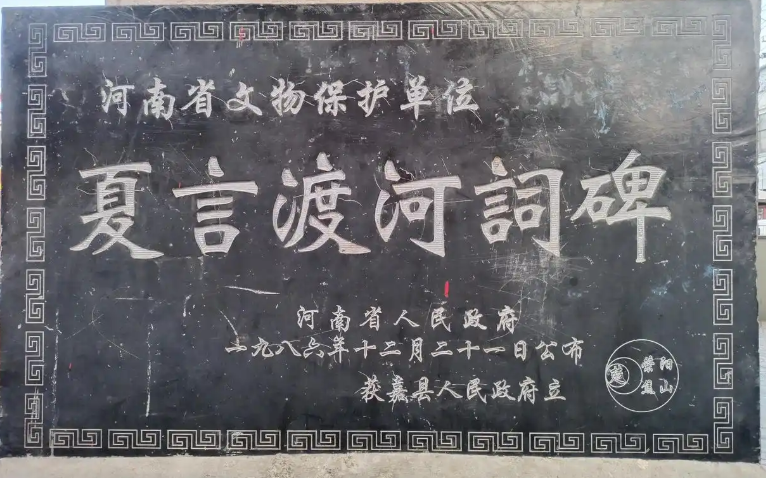 河南省文物保护单位
夏言渡河詞碑
河南省人民政府
一九八六年十二月二十一日公布
获嘉县人民政府立
阳山